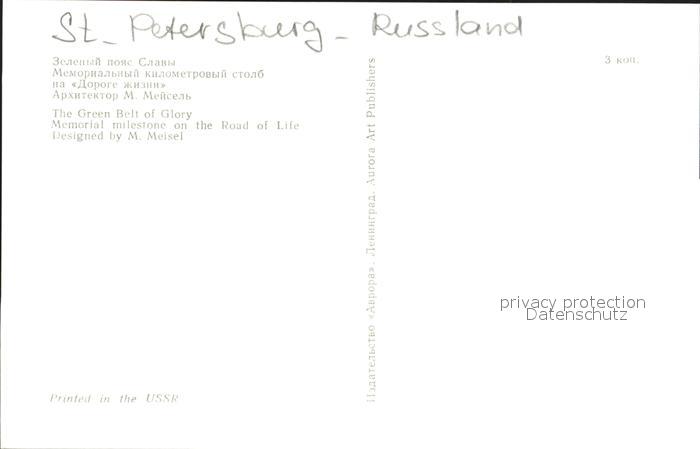 St. Petersburg - Russland
Зеленый пояс Славы
Мемориальный километровый столб
на «Дороге жизни»
Архитектор М. Мейсель
The Green Belt of Glory
Memorial milestone on the Road of Life
Designed by M. Meisel
Printed in the USSR
Издательство «Аврора». Ленинград. Aurora Art Publishers
3 коп.
privacy protection
Datenschutz